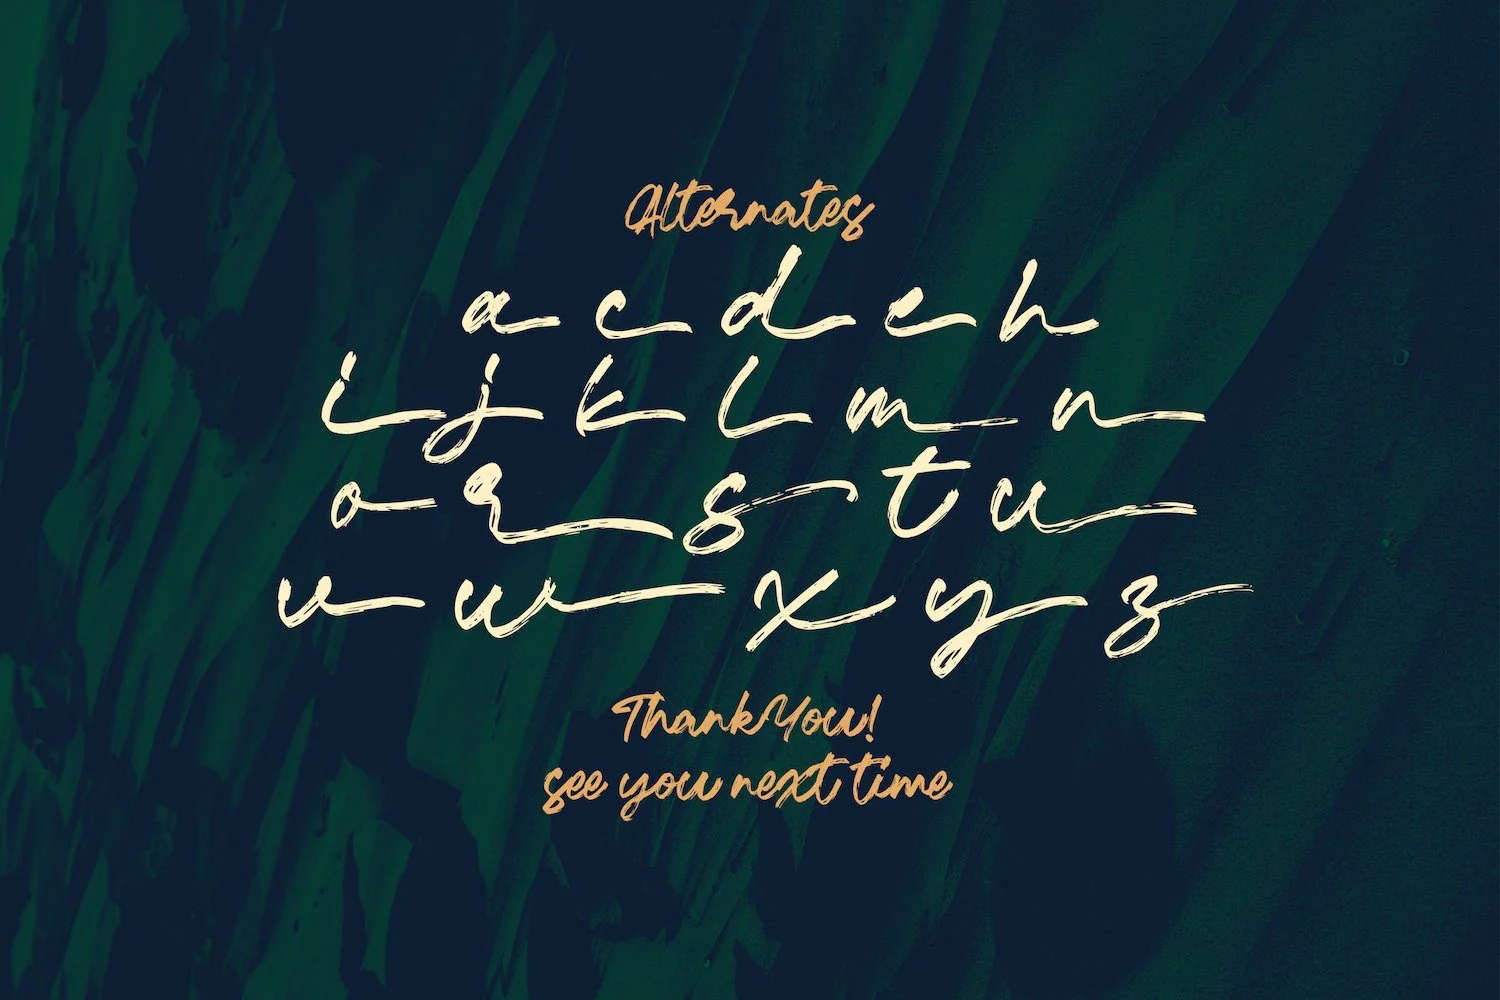 Alternates
a c d e h
i j k l m n
o r s t u
v w x y z
Thank You!
see you next time